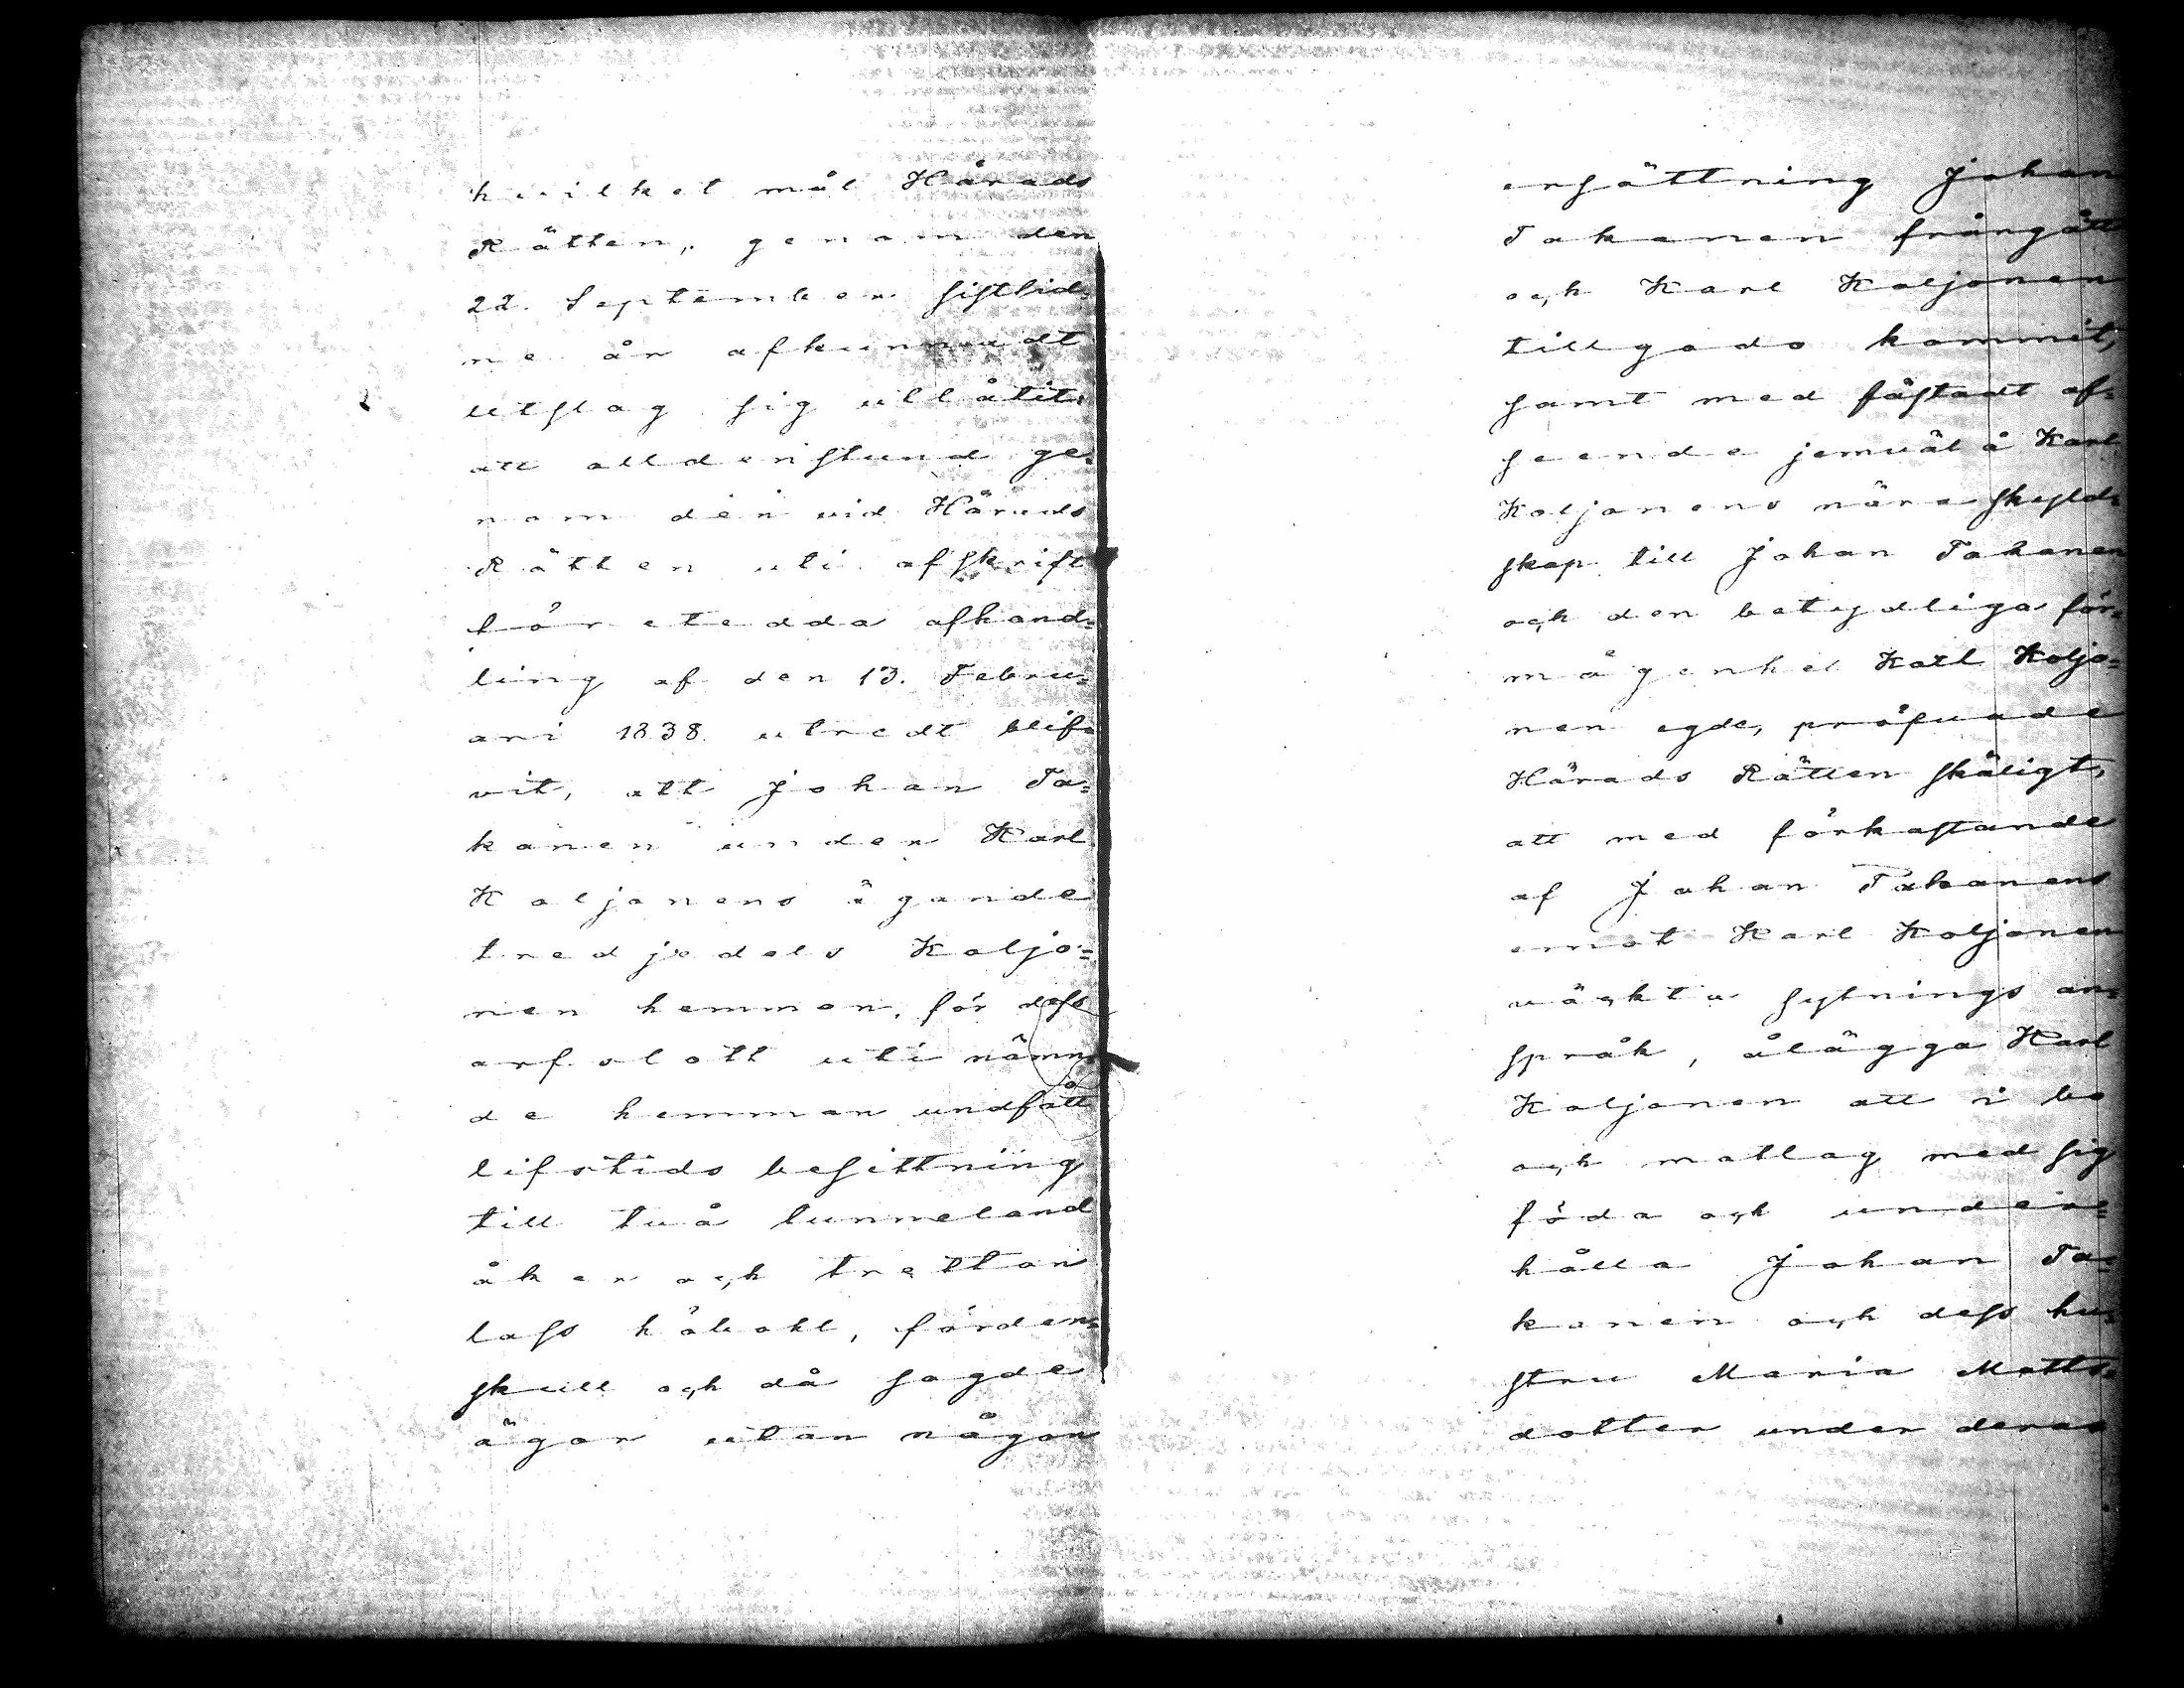 hvilket mål Härads
Rätten, genom den
22. September sistlid=
ne år afkunnadt
utslag sig utlåtit,
att alldenstund ge=
nom den vid Härads
Rätten uti afskrift
företedda afhand=
ling af den 13. Febru=
ari 1838 utredt blif=
vit, att Johan Ta=
kanen under Karl
Koljonens ägande
tredjedels Koljo=
nen hemman, för dess
arfslott uti nämn=
de hemman undfått
lifstids besittning
till två tunneland
åker och tretton
lass höbohl, förden=
skull och då sagde
ägor utan någon
ersättning Johan
Takanen frångått
och Karl Koljonen
tillgodo kommit,
samt med fästadt af=
seende jemväl å Karl
Koljonens nära skyld=
skap till Johan Takanen
och den betydliga för=
mögenhet Karl Koljo=
nen egde, pröfvade
Härads Rätten skäligt,
att med förkastande
af Johan Takanens
emot Karl Koljonen
väckta sytnings an=
språk, ålägga Karl
Koljonen att i bo
och matlag med sig
föda och under=
hålla Johan Ta=
kanen och dess hu=
stru Maria Matts=
dotter under deras